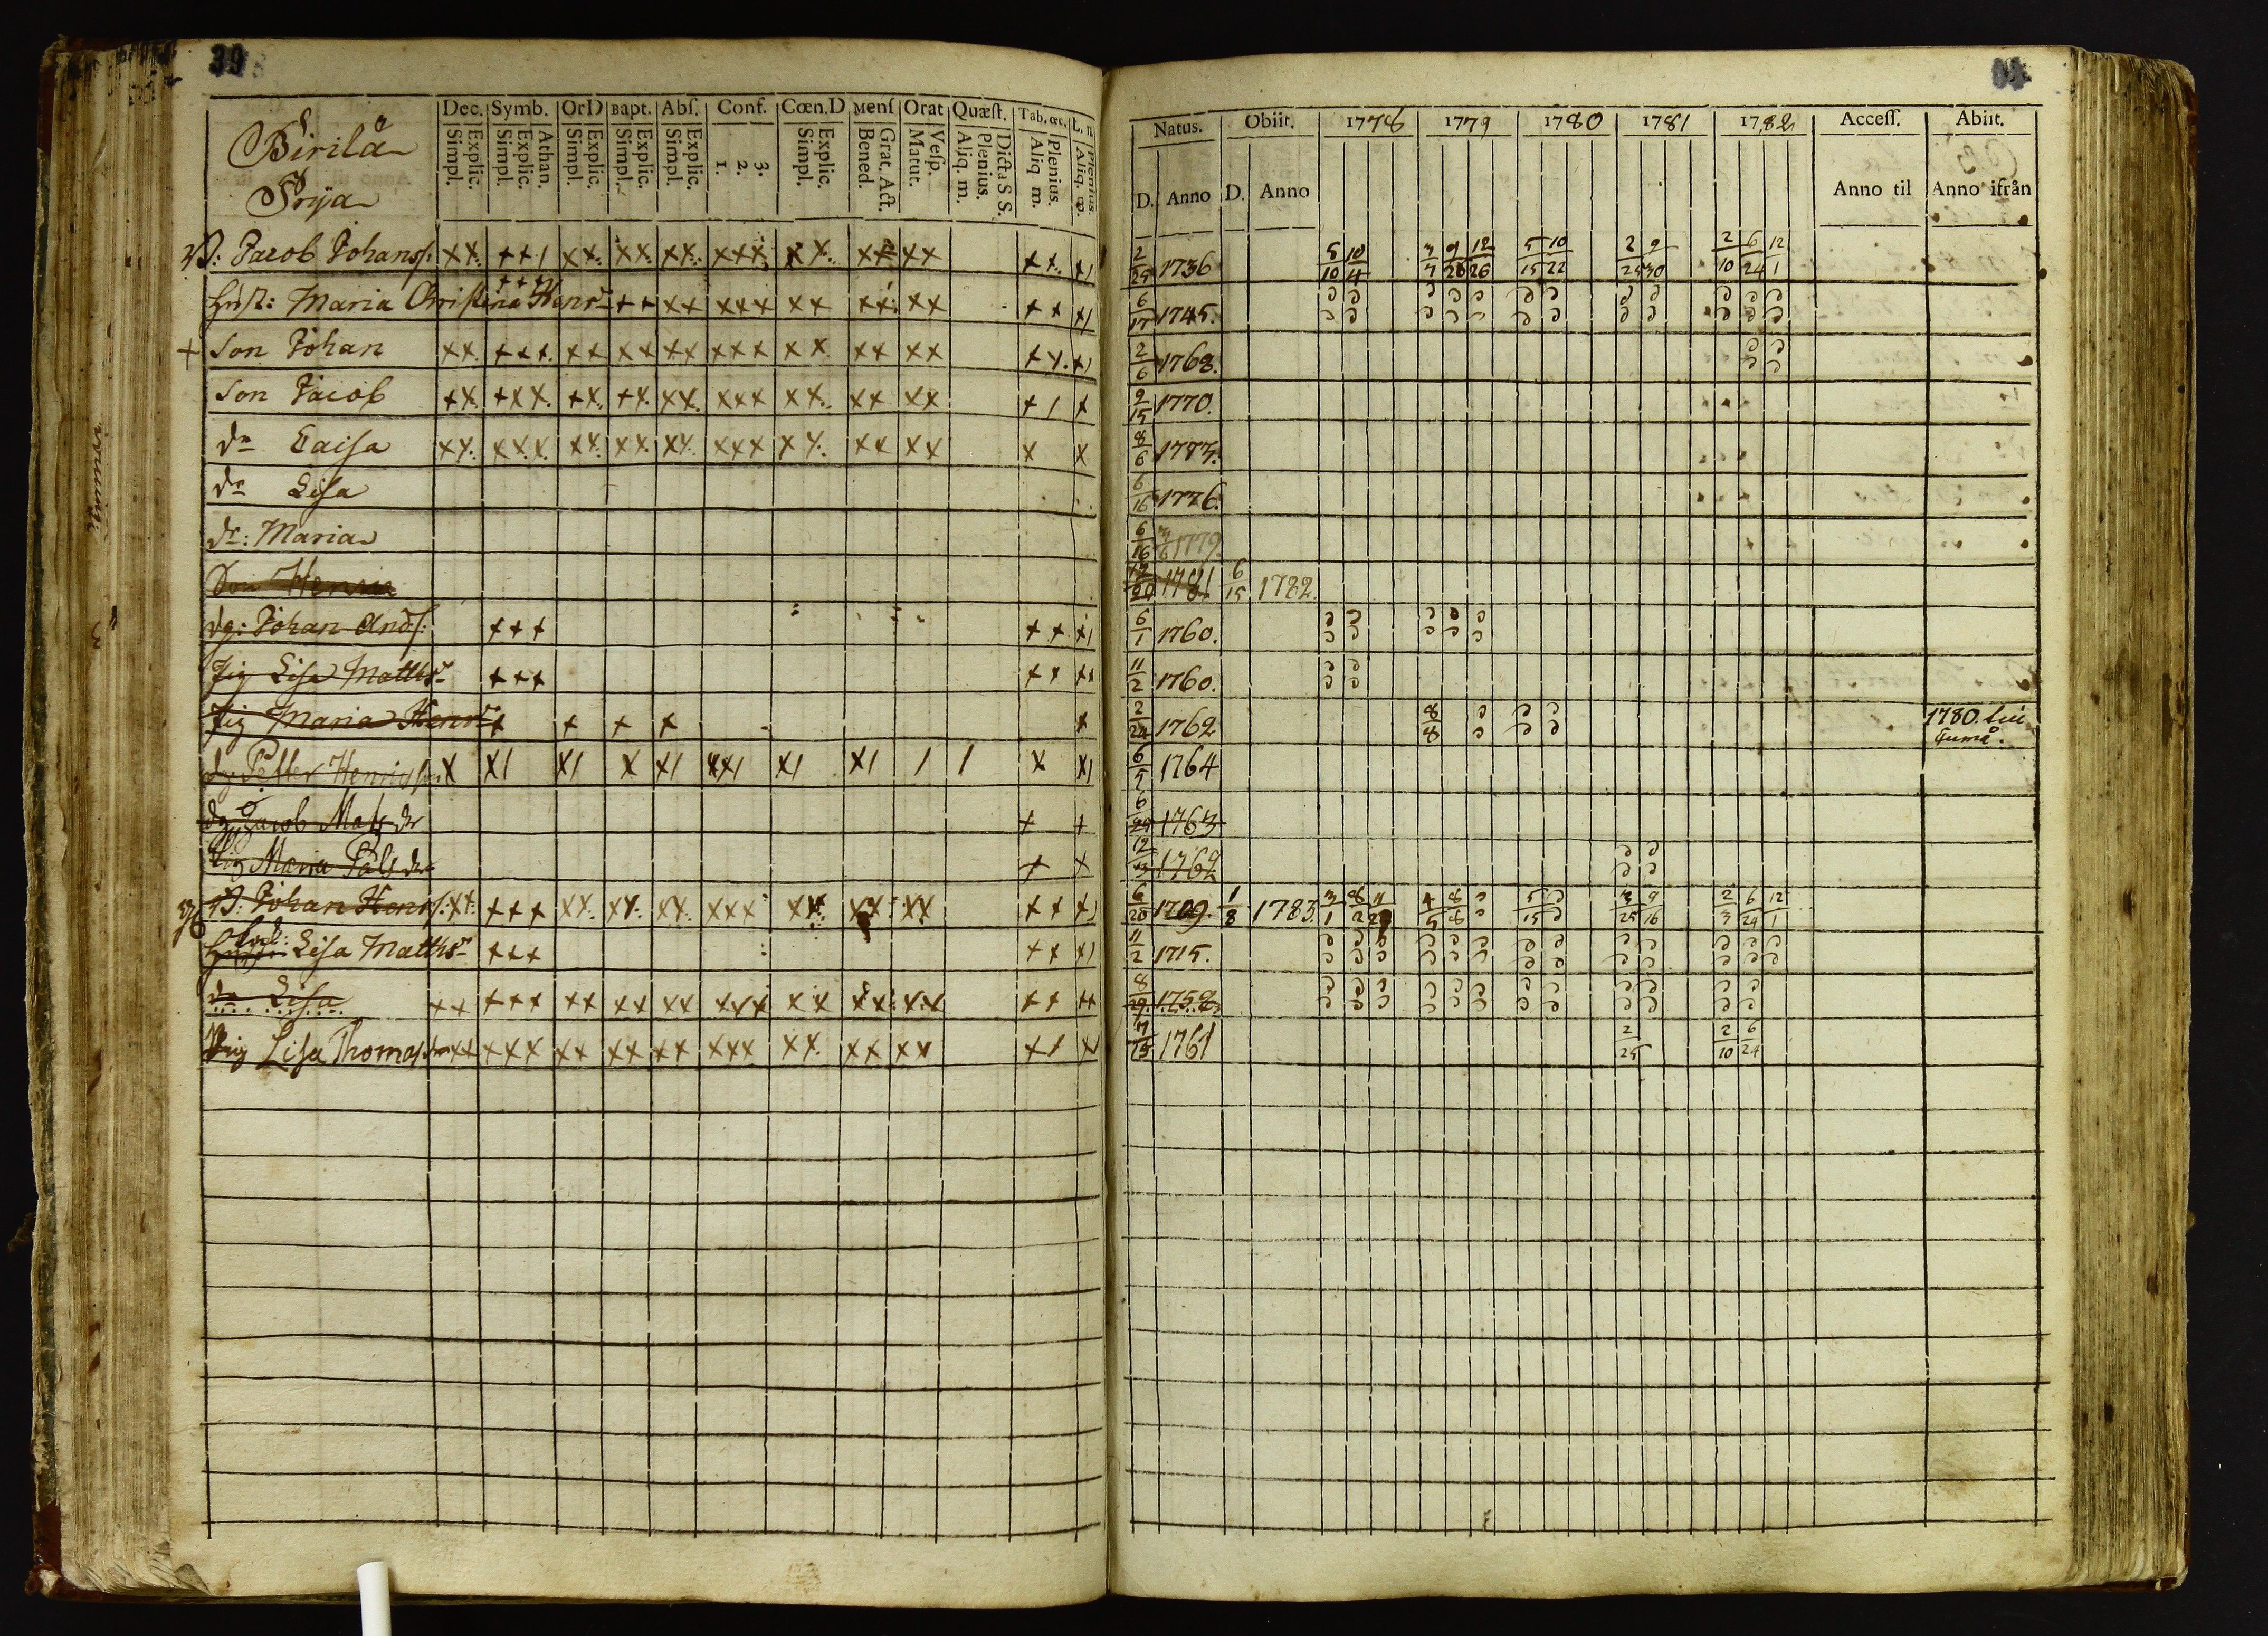 39
Dec. Symb. OrD Bapt. Abs. Conf. Cœn.D Mens Orat Quæst. Tab.œc. L. n
Explic. Simpl. Athan. Explic. Simpl. Explic. Simpl. Explic. Simpl. Explic. Simpl. 3. 2. 1. Explic. Simpl. Grat. Act. Bened. Vesp. Matut. Dicta S S. Plenius. Aliq. m. Plenius. Aliq m. Plenius. Aliq. m.
Birilä
Prya
B: Jacob Johans:
Hust: Maria Christina Henrsdr
+ Son Johan
Son Jacob
dr Caisa
dr Lisa
dr: Maria
Son Henric
dg: Johan Ands:
Pig Lisa Matthsdr
Pig Maria Henrsdr
dg Petter Henricsson
dg Jacob Mats
Pig Maria Påls dr
B: Johan Henrs:
Lisa Matthsdr
dr Lisa
Pig Lisa Thomasdr
Natus. Obiit. 1778 1779 1780 1781 1782 Access. Abiit.
D. Anno D. Anno Anno til Anno ifrån
2/25 1736 5/10 10/4 3/7 9/26 12/26 5/15 10/22 2/25 9/30 2/10 6/24 12/1
6/17 1745.
2/6 1768.
9/15 1770.
8/6 1773.
6/16 1776.
6/16 3/6 1779.
12/20 1781 6/15 1782.
6/1 1760.
11/2 1760.
2/24 1762 8/8 1780.
6/5 1764
6/29 1763
12/13 1762
6/20 1709. 1/8 1783. 3/1 8/2 11/29 4/5 8/8 5/15 3/25 9/16 2/3 6/24 12/1
11/2 1715.
8/29 1758
7/25 1761 2/25 2/10 6/24